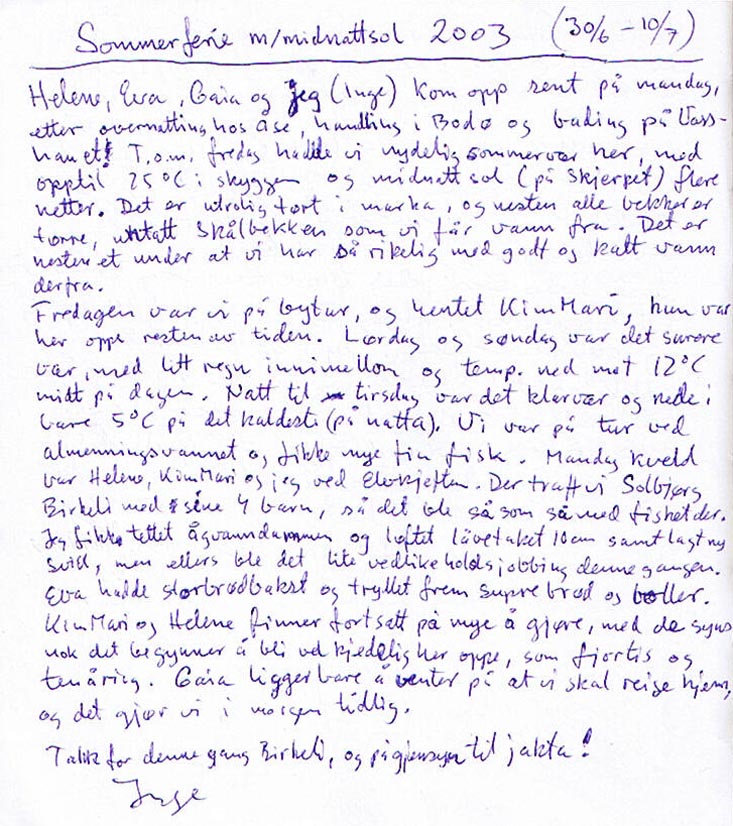 Sommerferie m/midnattsol 2003 (30/6 - 10/7)
Helene, Eva, Gaia og Jeg (Inge) kom opp sent på mandag,
etter overnatting hos Åse, handling i Bodø og bading på Vass-
hauet! T.o.m. fredag hadde vi nydelig sommervær her, med
opptil 25°C i skyggen og midnattsol (på Skjerpet) flere
netter. Det er utrolig tørt i marka, og nesten alle bekker er
tørre, untatt Skålbekken som vi får vann fra. Det er
nesten et under at vi har så rikelig med godt og kaldt vann
derfra.
Fredagen var vi på bytur, og hentet KimMari, hun var
her oppe resten av tiden. Lørdag og søndag var det surere
vær, med litt regn innimellom og temp. ned mot 12°C
midt på dagen. Natt til tirsdag var det klarvær og nede i
bare 5°C på det kaldeste (på natta). Vi var på tur ved
almenningsvannet og fikk mye fin fisk. Mandag kveld
var Helene, KimMari og jeg ved Elvkjeften. Der traff vi Solbjørg
Birkeli med sine 4 barn, så det ble så som så med fisket der.
Jeg fikk tettet ågvanndammen og løftet låvetaket 10cm samt lagt ny
svill, men ellers ble det lite vedlikeholdsjobbing denne gangen.
Eva hadde storbrødbakst og tryllet frem supre brød og boller.
KimMari og Helene finner fortsatt på mye å gjøre, med de syns
nok det begynner å bli vel kjedelig her oppe, som fjortis og
tenåring. Gaia ligger bare å venter på at vi skal reise hjem,
og det gjør vi i morgen tidlig.
Takk for denne gang Birkeli, og på gjensyn til jakta!
Inge